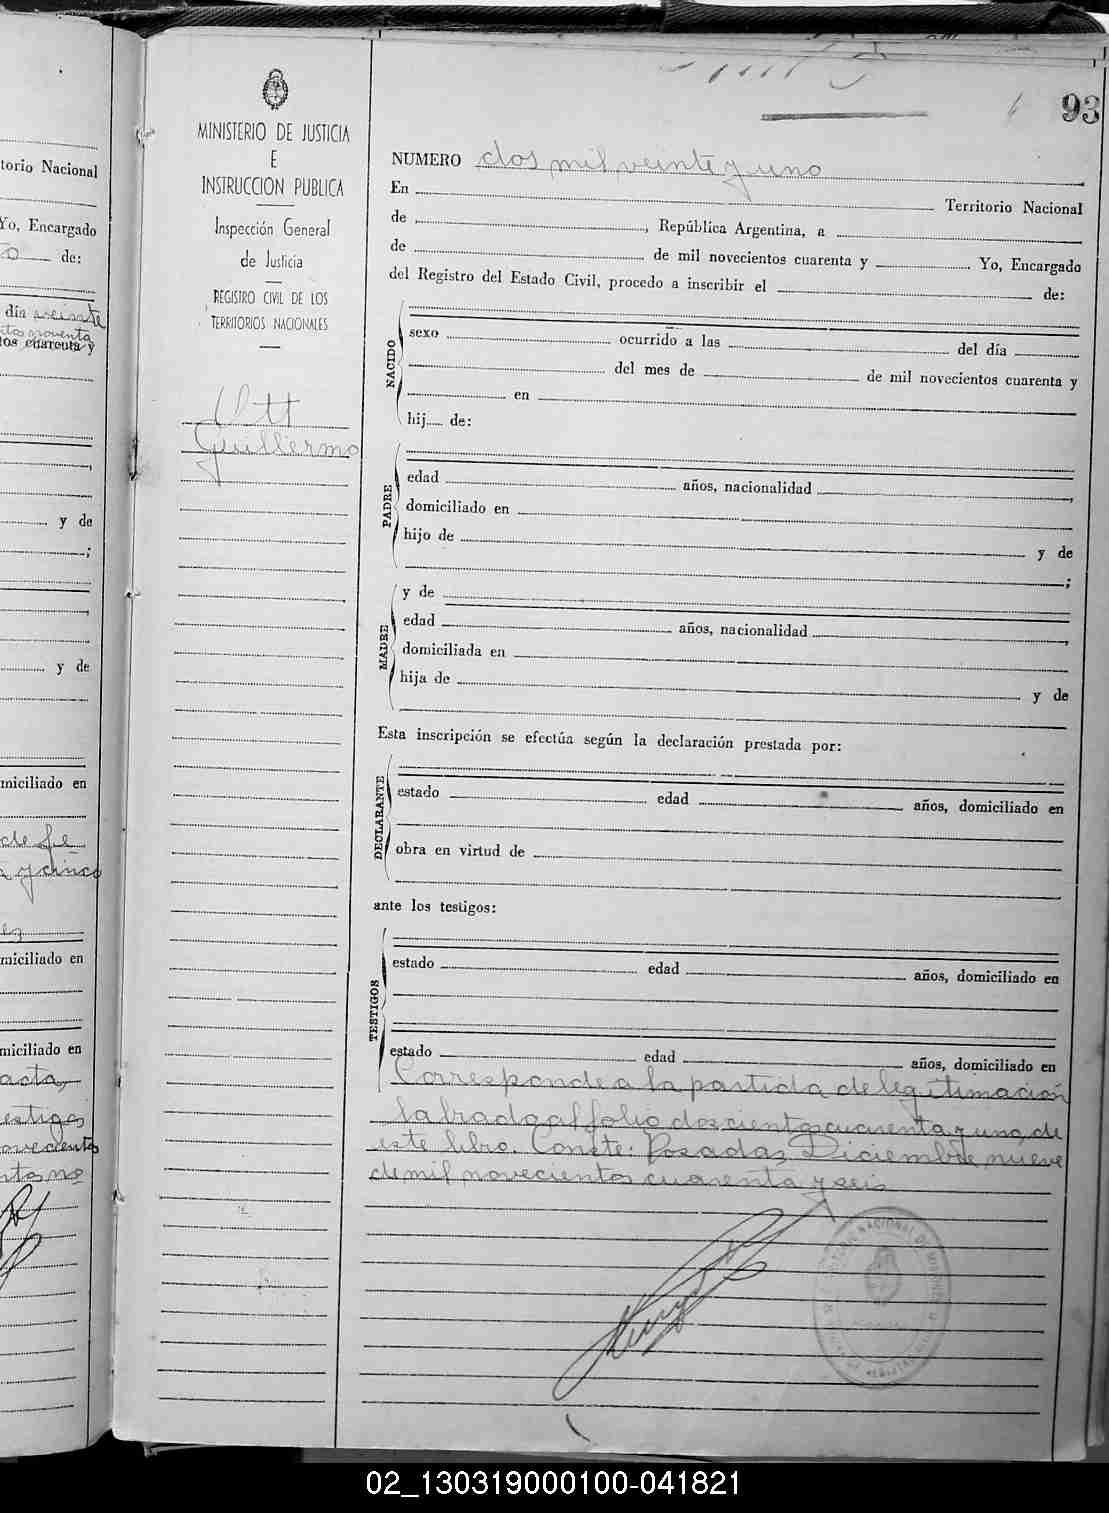 torio Nacional
Yo, Encargado
to de:
día veinte
tos noventa
tos cuarenta y
y de
;
y de
miciliado en
de fe
y cinco
miciliado en
miciliado en
acta,
testigos
novecientos
93
MINISTERIO DE JUSTICIA
E
INSTRUCCION PUBLICA
Inspección General
de Justicia
REGISTRO CIVIL DE LOS
TERRITORIOS NACIONALES
Ott
Guillermo
NUMERO dos mil veinte y uno
En Territorio Nacional
de , República Argentina, a
de de mil novecientos cuarenta y Yo, Encargado
del Registro del Estado Civil, procedo a inscribir el de:
NACIDO
sexo ocurrido a las del día
del mes de de mil novecientos cuarenta y
en
hij de:
PADRE
edad años, nacionalidad ,
domiciliado en
hijo de y de
;
MADRE
y de
edad años, nacionalidad ,
domiciliada en
hija de y de
Esta inscripción se efectúa según la declaración prestada por:
DECLARANTE
estado edad años, domiciliado en
obra en virtud de
ante los testigos:
TESTIGOS
estado edad años, domiciliado en
estado edad años, domiciliado en
Corresponde a la partida de legitimación
labrada al folio doscientos cuarenta y uno, de
este libro. Conste: Posadas, Diciembre nueve
de mil novecientos cuarenta y seis
02_130319000100-041821